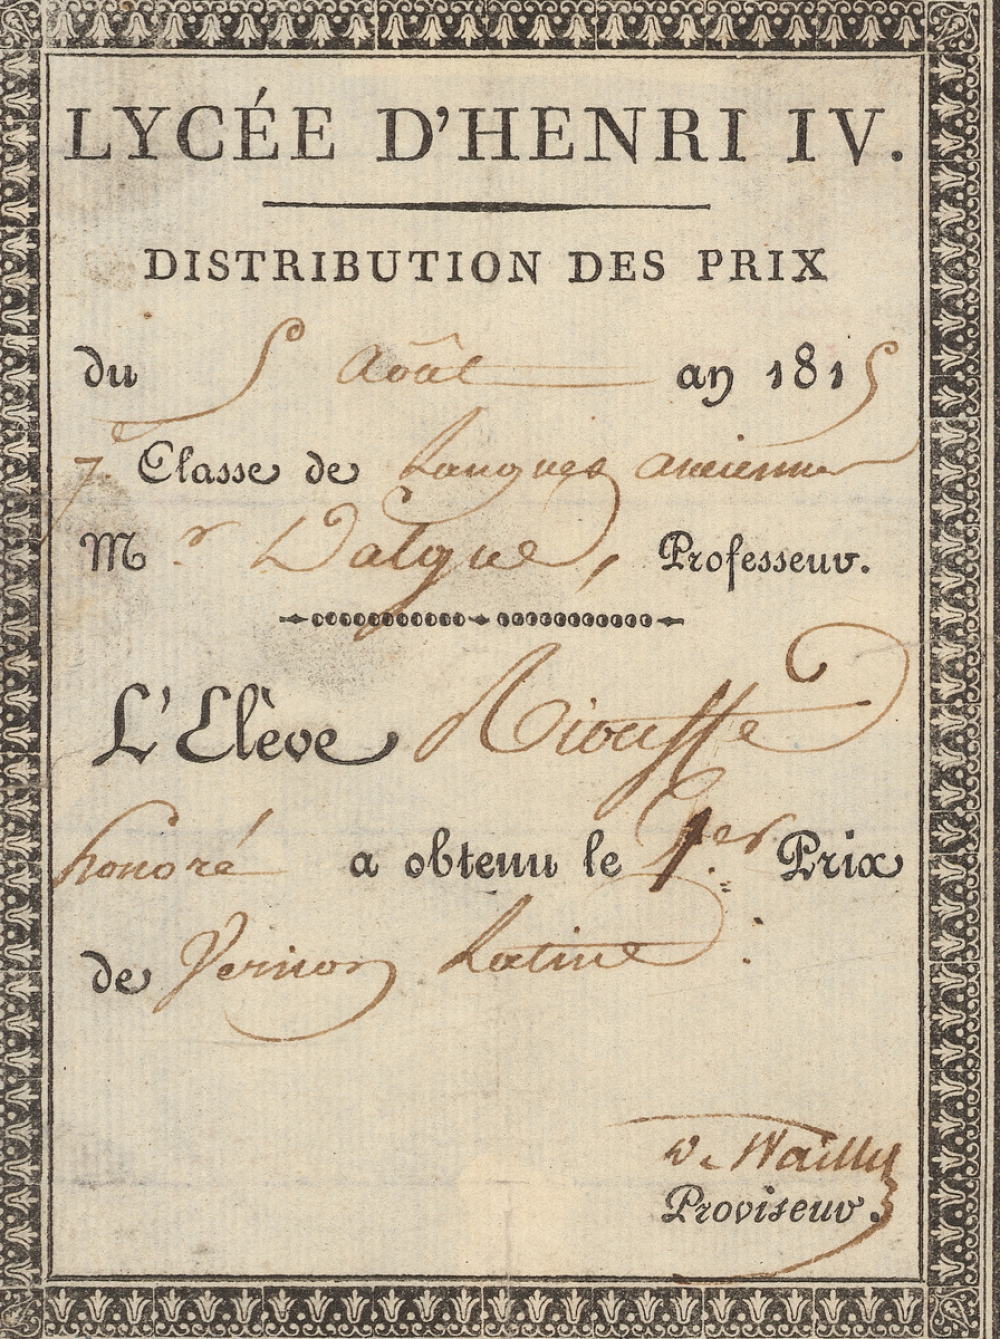 LYCÉE D'HENRI IV.
DISTRIBUTION DES PRIX
du 5 Août an 1815
7.e Classe de Langues anciennes
M.r Dalgue, Professeur.
L'Elève Riousse
honoré a obtenu le 1.er Prix
de Version Latine.
De Wailly
Proviseur.